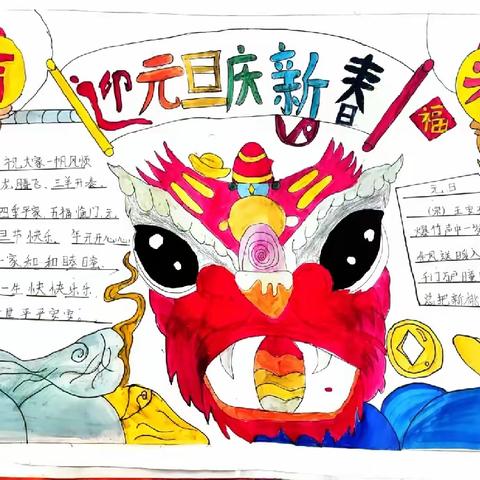 迎元旦庆新春
福
祝大家一帆风顺
腾飞、三羊开泰、
四季平安、五福临门、元
旦节快乐、年开心心
家和和睦睦
一生快快乐乐
平平安安
元日
(宋)王安
爆竹声中一岁
春风送暖入
千门万户曈
总把新桃